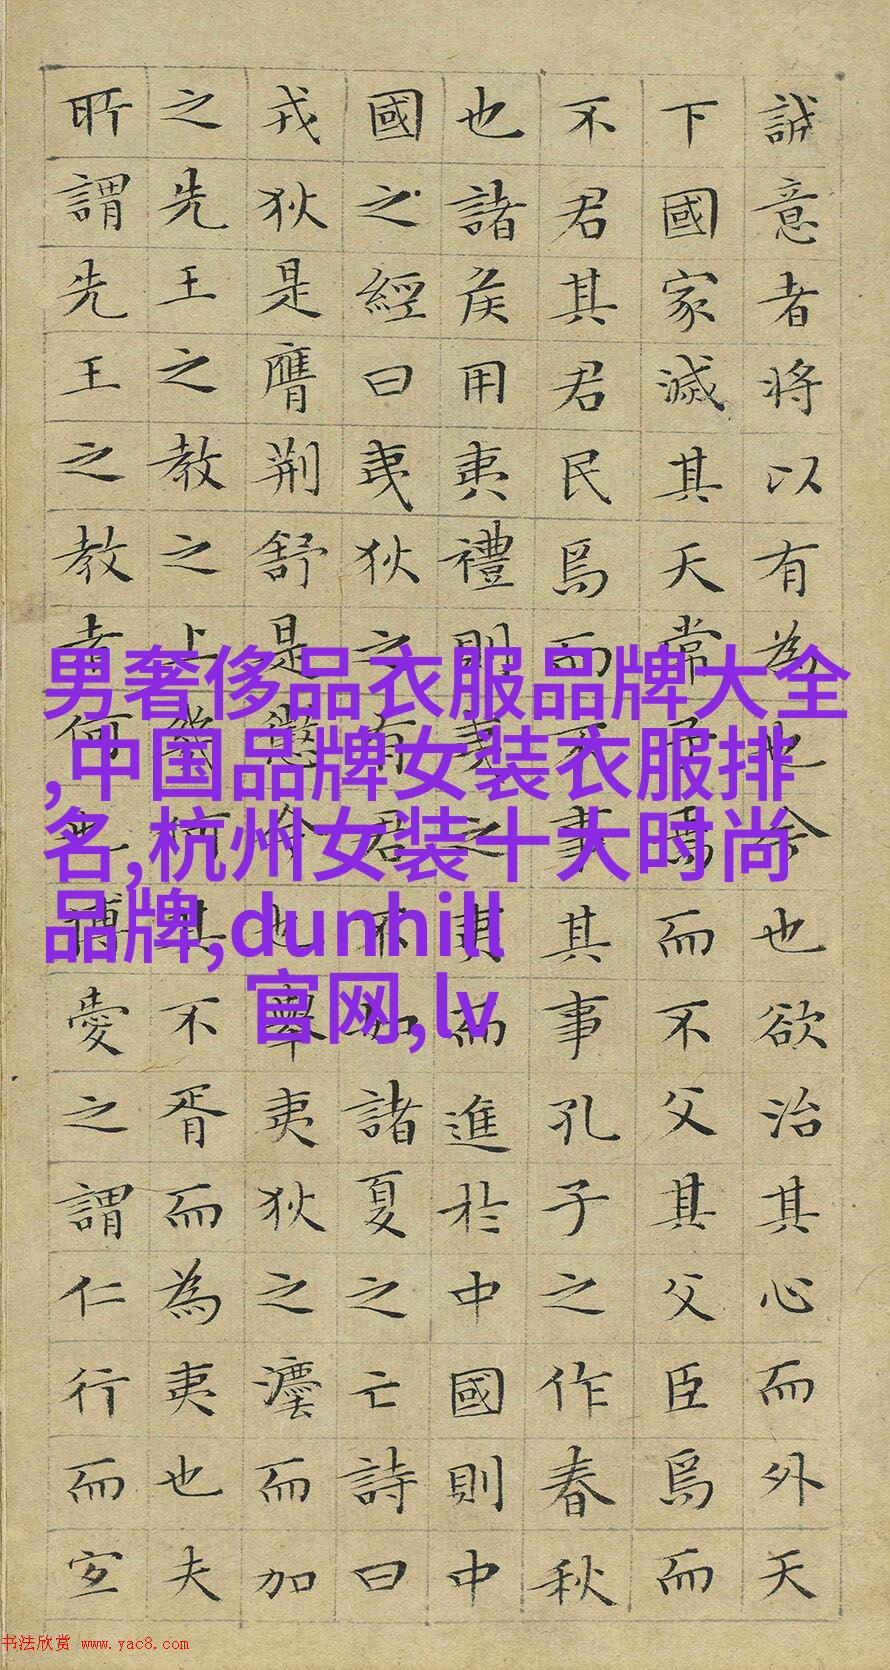 誠意者将以有為也今也欲治其心而外天
下國家滅其天常子焉而不父其父臣焉而
不君其君民焉而不事其事孔子之作春秋
也諸侯用夷禮則夷之夷而進於中國則中
國之經曰夷狄之有君不如諸夏之亡詩曰
戎狄是膺荆舒是懲今也舉夷狄之灋而加
之先王之教之上幾何其不胥而為夷也夫
所謂先王之教者何也博愛之謂仁行而宜
男奢侈品衣服品牌大全
,中国品牌女装衣服排
名,杭州女装十大时尚
品牌,dunhill
官网,lv
书法欣赏 www.yac8.com